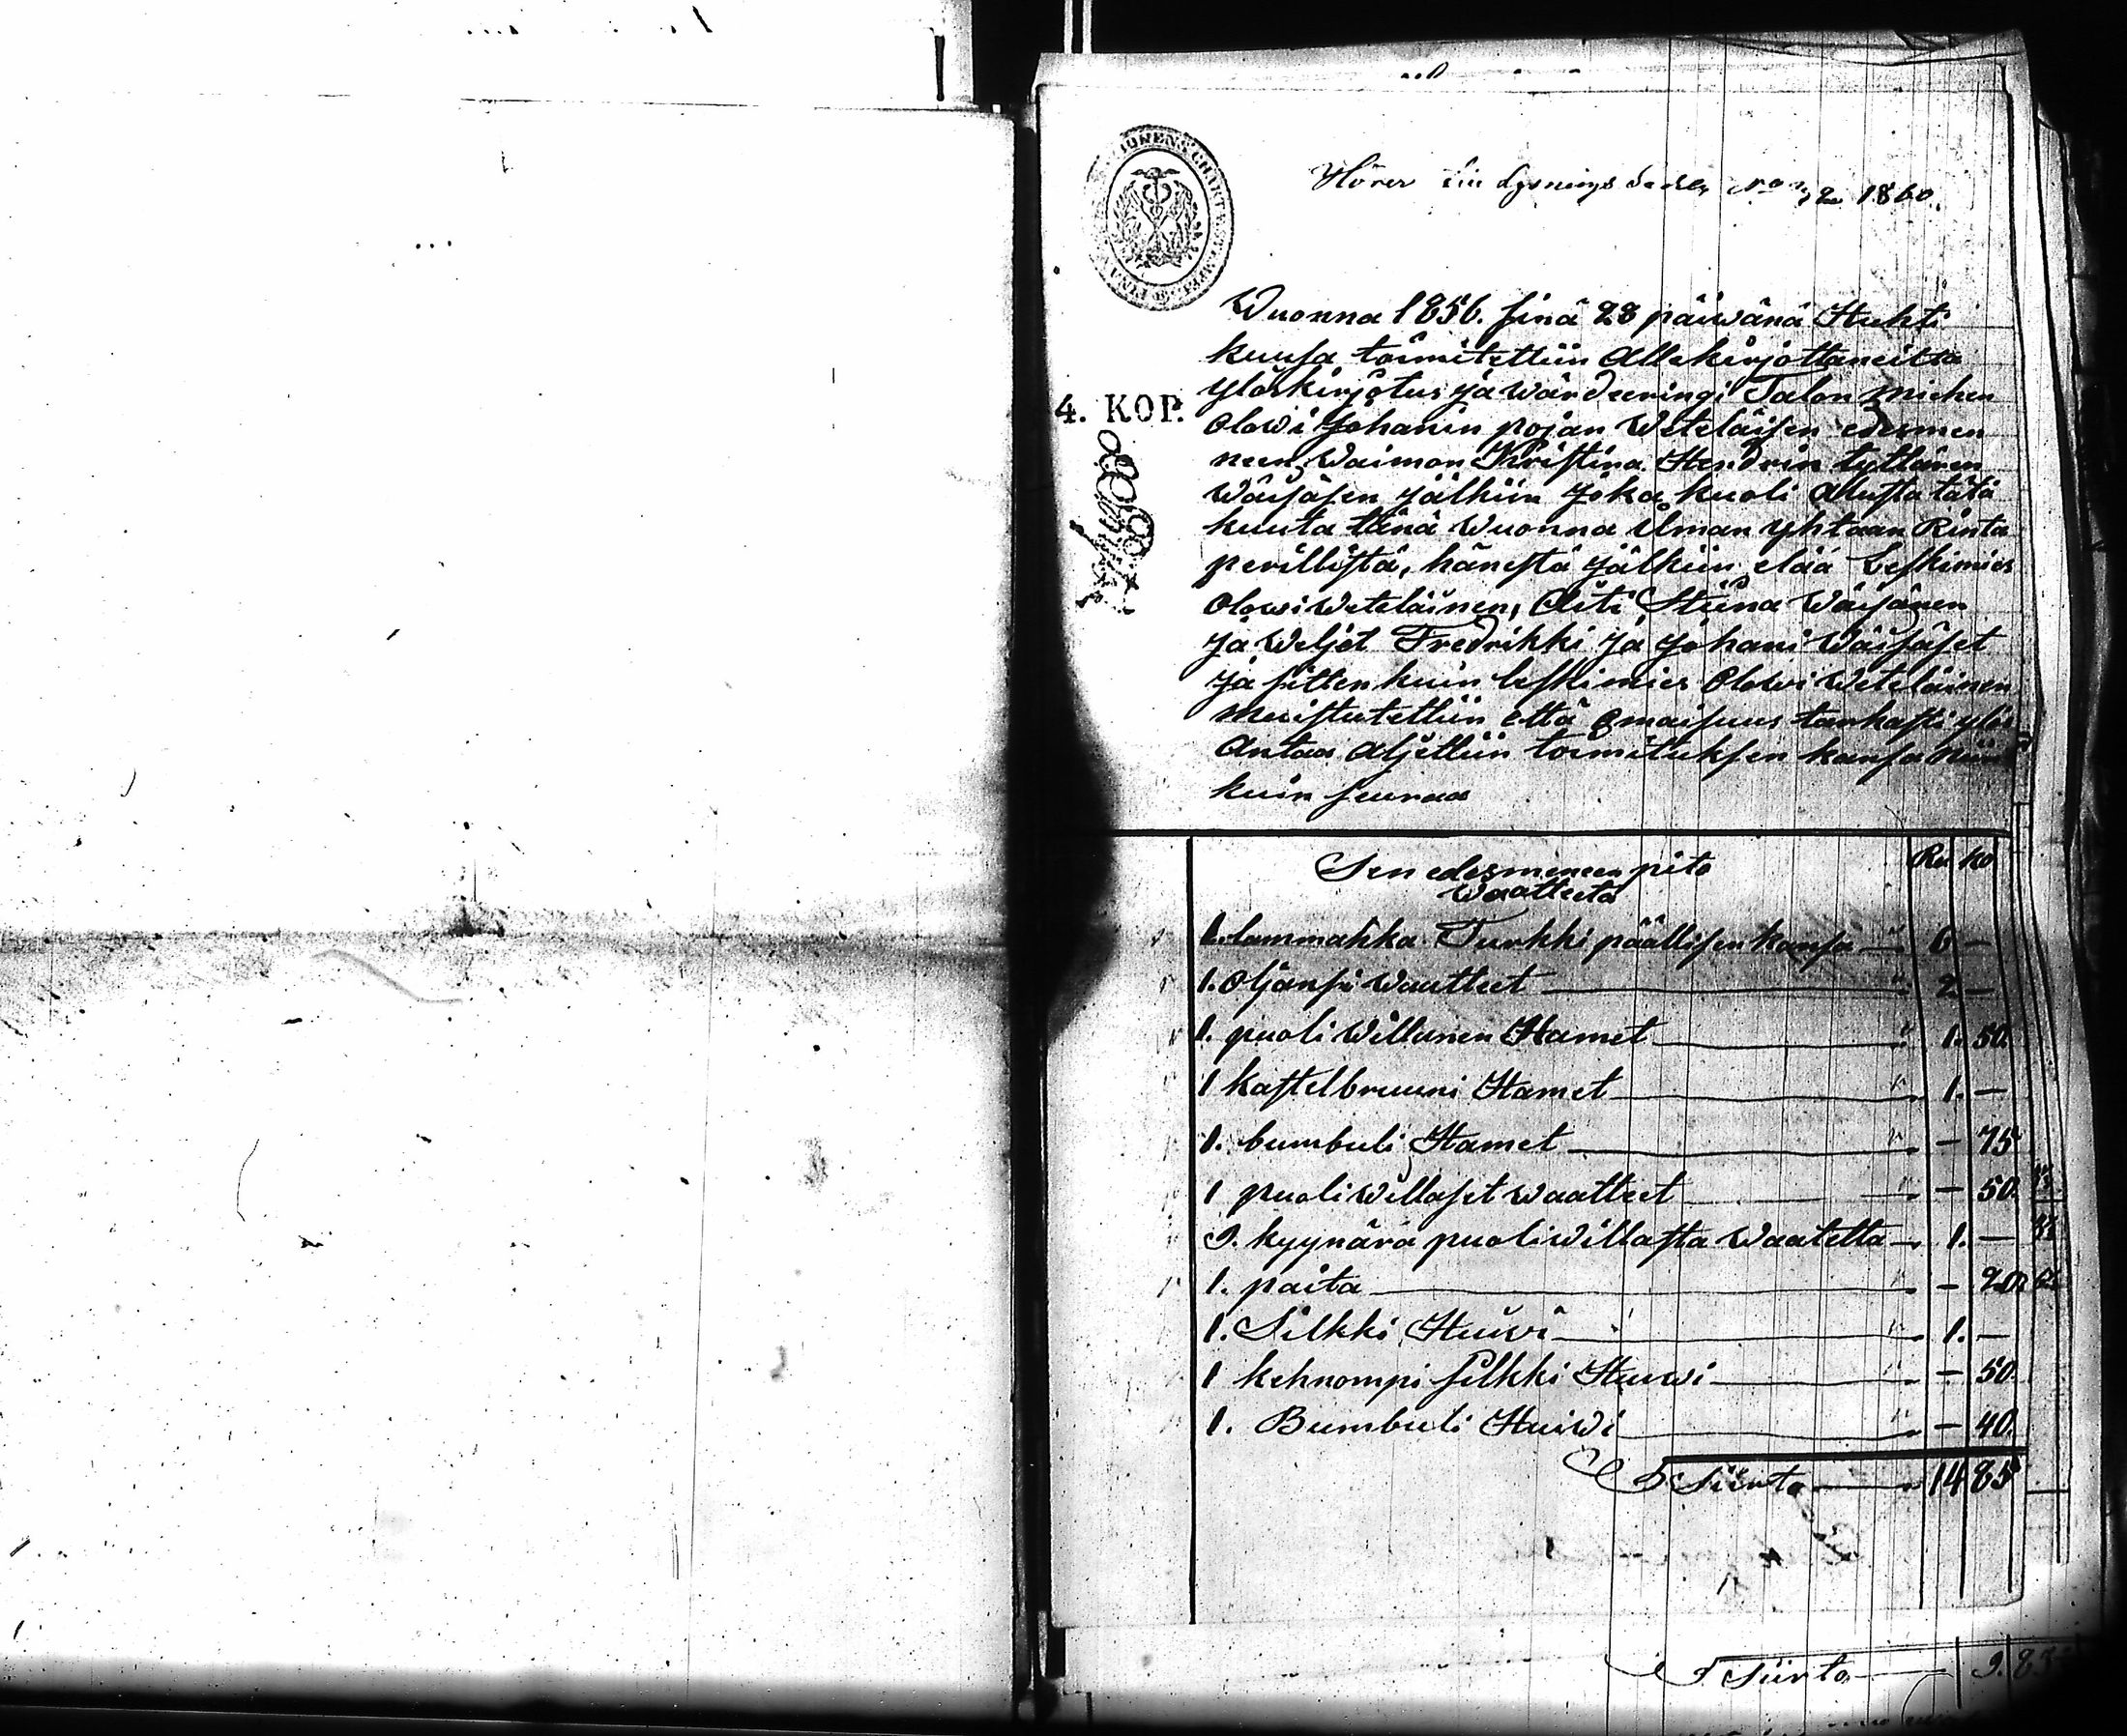 Hörer till Lysnings Saken No 1860.
4. KOP.
Wuonna 1856. sinä 28 päiwänä Huhti
kuusa toimitettiin Allekirjottaneilta
Ylöskirjotus ja wärdeeringi Talon Miehen
Olowi Johanin pojan Weteläisen edesmen
neen Waimon Kristina Hendrin tyttären
Wäisäsen jälkiin joka kuoli Alusta tätä
kuuta tänä Wuonna ilman yhtään Rinta
perillistä, hänestä jälkiin elää Leskimies
Olowi Weteläinen, Äiti Stiina Wäisänen
ja Weljet Fredrikki ja Johani Wäisäset
ja sitten kuin leskimies Olowi Weteläinen
Muistutettiin että Omaisuus tarkasti ylös
Antaa Aljettiin toimituksen kansa Niin
kuin seuraa
Sen edesmeneen pito Waatteeta Ru ko
1. lammahka Turkki päällisen kansa — " 6 —
1. Oljansi Waatteet — " 2. —
1. puoli Willanen Hamet — " 1. 50.
1 kastelbruuni Hamet — " 1. —
1. bumbuli Hamet — " — 75
1 puoliWillaset Waatteet — " — 50.
9. kyynärä puoliWillasta Waatetta — 1. —
1. paita — " — 20.
1. Silkki Huiwi — " 1. —
1 kehnompi silkki Huiwi — " — 50.
1. Bumbuli Huiwi — " — 40.
Siirto — 14 85
Siirto — 9. 83